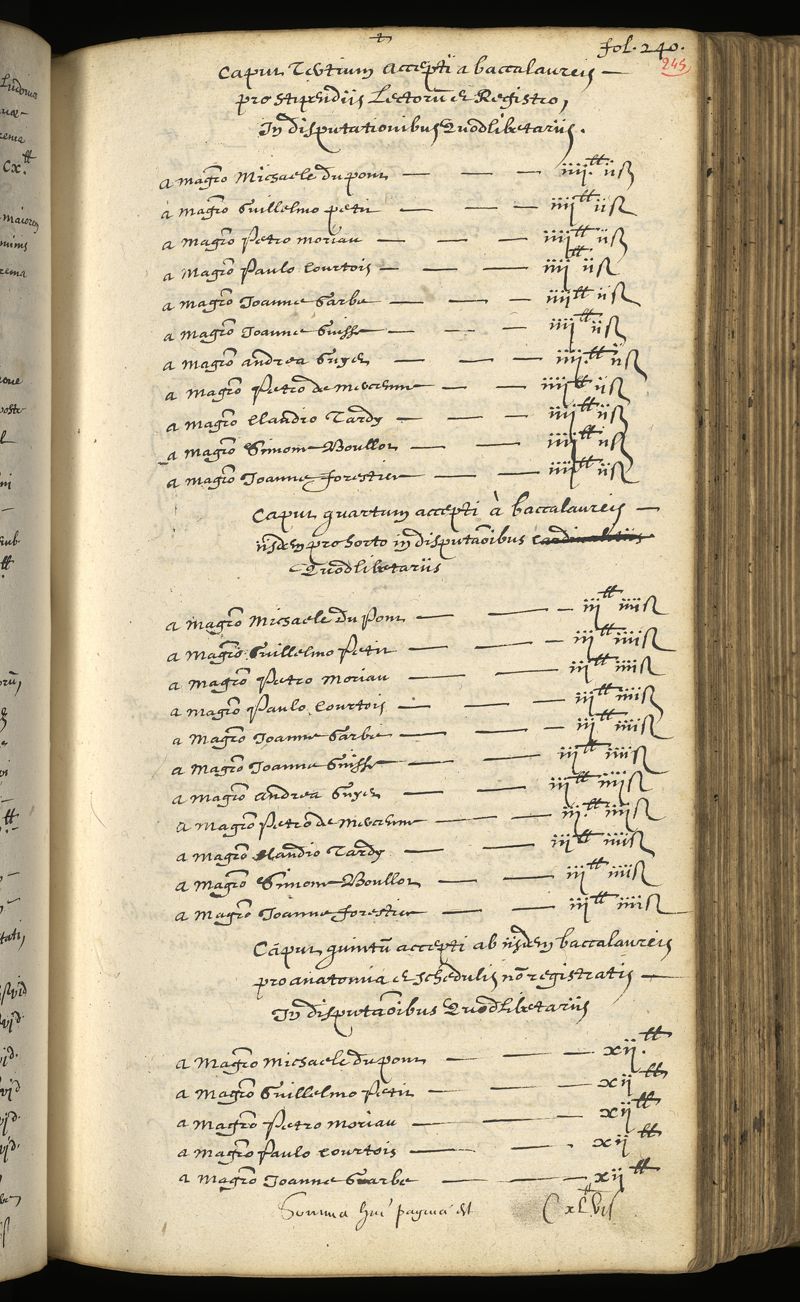 fol. 240.
245
Caput Tertium accepti a baccalaureis —
pro stipendiis Lectorū et Registro,
In disputationibus Quodlibetariis.
a magrō Micaele du pont — — — iiij.tt ijß
a magrō Guillelmo petit — — — iiij tt ijß
a magrō Petro moriau — — — iiij tt ijß
a magrō Paulo Courtois — — — iiij tt ijß
a magrō Joanne Garbe — — — iiij tt ijß
a magrō Joanne Guisse — — — iiij tt ijß
a magrō andrea Guyet — — — iiij.tt ijß
a magrō Petro de mercenne — — iiij tt ijß
a magrō Claudio Tardy — — — iiij tt ijß
a magrō Simone Boullot — — iiij tt ijß
a magrō Joanne forestier — — iiij tt ijß
Caput quartum accepti à baccalaureis —
iisdem pro horto in disputaōibus cardinalitiis
Quodlibetariis
a magrō Micaele du Pont — — — iij tt iiijß
a magrō Guillelmo Petit — — — iij tt iiijß
a magrō Petro moriau — — — iij tt iiijß
a magrō Paulo Courtois — — — iij tt iiijß
a magrō Joanne Garbe — — — iij tt iiijß
a magrō Joanne Guisse — — — iij tt iiijß
a magrō andrea Guyet — — — iij tt iiijß
a magrō Petro de mercenne — — — iij.tt iiijß
a magrō Claudio Tardy — — iij tt iiijß
a magrō Simone Boullot — — — iij tt iiijß
a magrō Joanne forestier — — iij tt iiijß
Caput quintū accepti ab iisdem baccalaureis
pro anatomia et schedulis nō registratis —
In disputaōibus Quodlibetariis
a magrō Micaele du pont — — — xij.tt
a magrō Guillelmo Petit — — — xij tt
a magrō Petro moriau — — xij tt
a magrō Paulo Courtois — — xij tt
a magrō Joanne Garbe — — — xij tt
Somma huī pagina est